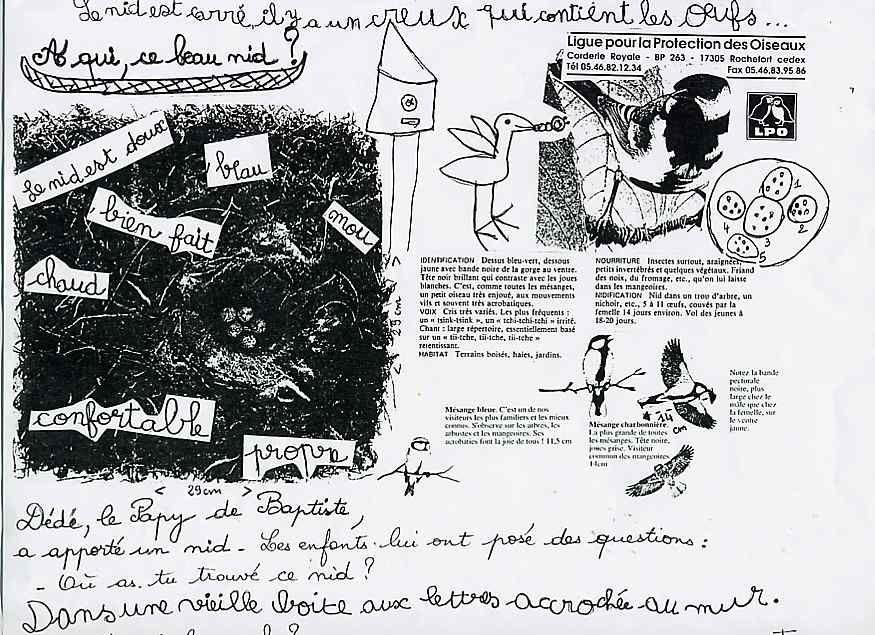 Le nid est carré, il y a un creux qui contient les Œufs...
A qui, ce beau nid ?
Ligue pour la Protection des Oiseaux
Corderie Royale - BP 263 - 17305 Rochefort cedex
Tél 05.46.82.12.34 Fax 05.46.83.95 86
LPO
Le nid est doux
beau
bien fait
mou
chaud
confortable
propre
29 cm
29 cm
1
2
3
4
5
IDENTIFICATION Dessus bleu-vert, dessous
jaune avec bande noire de la gorge au ventre.
Tête noir brillant qui contraste avec les joues
blanches. C'est, comme toutes les mésanges,
un petit oiseau très enjoué, aux mouvements
vifs et souvent très acrobatiques.
VOIX Cris très variés. Les plus fréquents :
un « tsink-tsink », un « tchi-tchi-tchi » irrité.
Chant : large répertoire, essentiellement basé
sur un « tii-tche, tii-tche, tii-tche »
retentissant.
HABITAT Terrains boisés, haies, jardins.
NOURRITURE Insectes surtout, araignées,
petits invertébrés et quelques végétaux. Friand
des noix, du fromage, etc., qu'on lui laisse
dans les mangeoires.
NIDIFICATION Nid dans un trou d'arbre, un
nichoir, etc., 5 à 11 œufs, couvés par la
femelle 14 jours environ. Vol des jeunes à
18-20 jours.
Mésange bleue. C'est un de nos
visiteurs les plus familiers et les mieux
connus. S'observe sur les arbres, les
arbustes et les mangeoires. Ses
acrobaties font la joie de tous ! 11,5 cm
Mésange charbonnière.
La plus grande de toutes
les mésanges. Tête noire,
joues grise. Visiteur
commun des mangeoires
14cm
14 cm
Notez la bande
pectorale
noire, plus
large chez le
mâle que chez
la femelle, sur
le ventre
jaune.
Dédé, le Papy de Baptiste,
a apporté un nid - Les enfants lui ont posé des questions :
- Où as-tu trouvé ce nid ?
Dans une vieille boite aux lettres accrochée au mur.